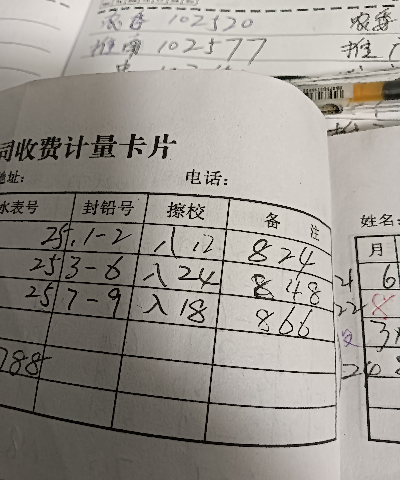 102520 农委
102577 推
司收费计量卡片
地址: 电话:
水表号 封铅号 擦校 备注
25.1-2 入12 824
25 3-6 入24 848
25 7-9 入18 866
788
姓名:
月
6
8
3